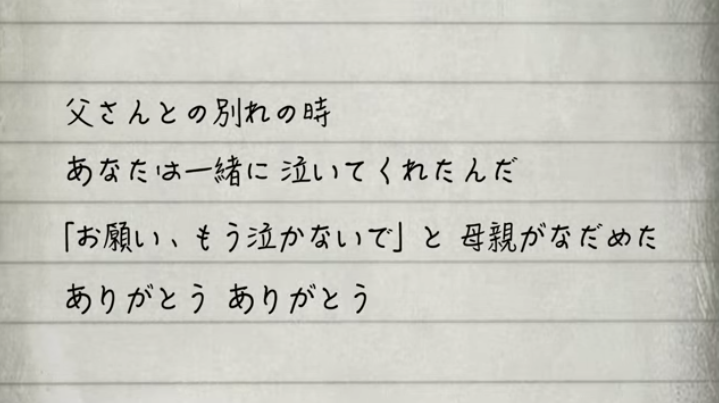 父さんとの別れの時
あなたは一緒に 泣いてくれたんだ
「お願い、もう泣かないで」と 母親がなだめた
ありがとう ありがとう